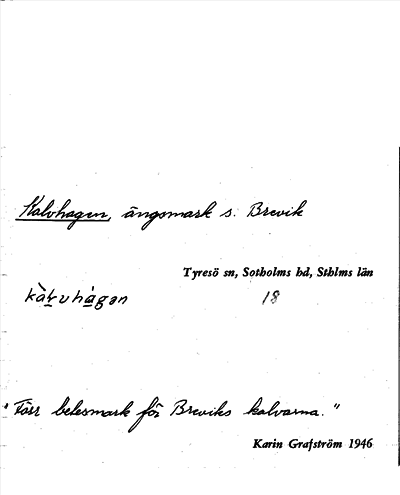 Kalvhagen, ängsmark s. Brevik
Tyresö sn, Sotholms hd, Sthlms län
kàḷvhạ̀gən 18
"Förr betesmark för Breviks kalvarna."
Karin Grafström 1946